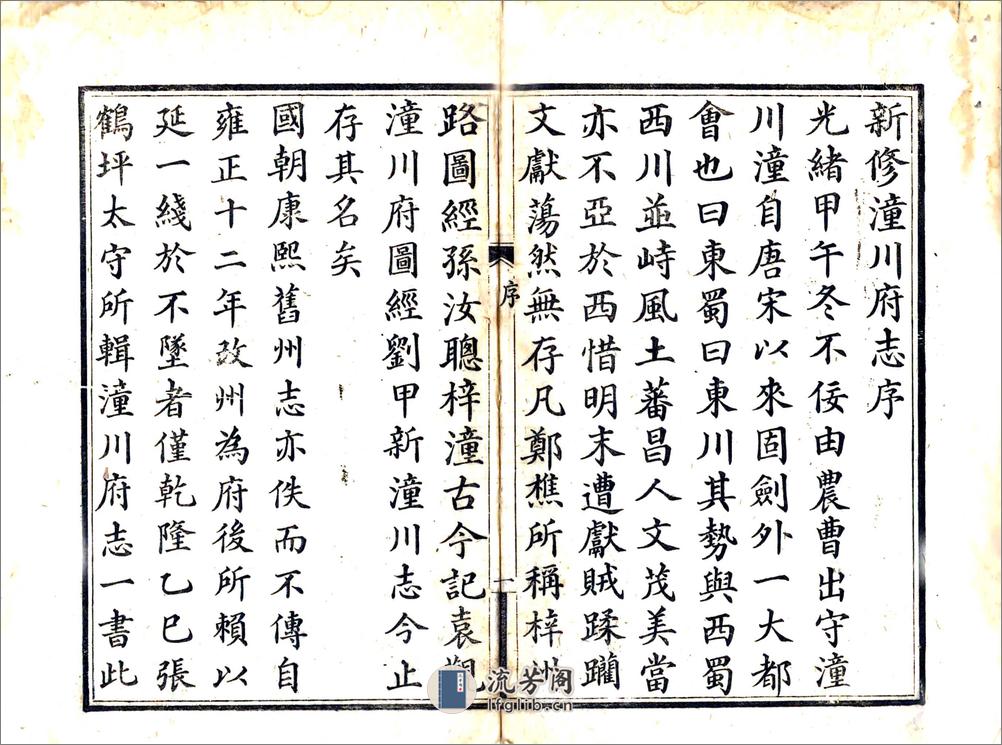 新修潼川府志序
光緒甲午冬不佞由農曹出守潼
川潼自唐宋以來固劍外一大都
會也曰東蜀曰東川其勢與西蜀
西川並峙風土蕃昌人文茂美當
亦不亞於西惜明末遭獻賊蹂躪
文獻蕩然無存凡鄭樵所稱梓州
序
一
路圖經孫汝聰梓潼古今記袁觀
潼川府圖經劉甲新潼川志今止
存其名矣
國朝康熙舊州志亦佚而不傳自
雍正十二年改州為府後所賴以
延一綫於不墜者僅乾隆乙巳張
鶴坪太守所輯潼川府志一書此
流芳阁
lfglib.cn